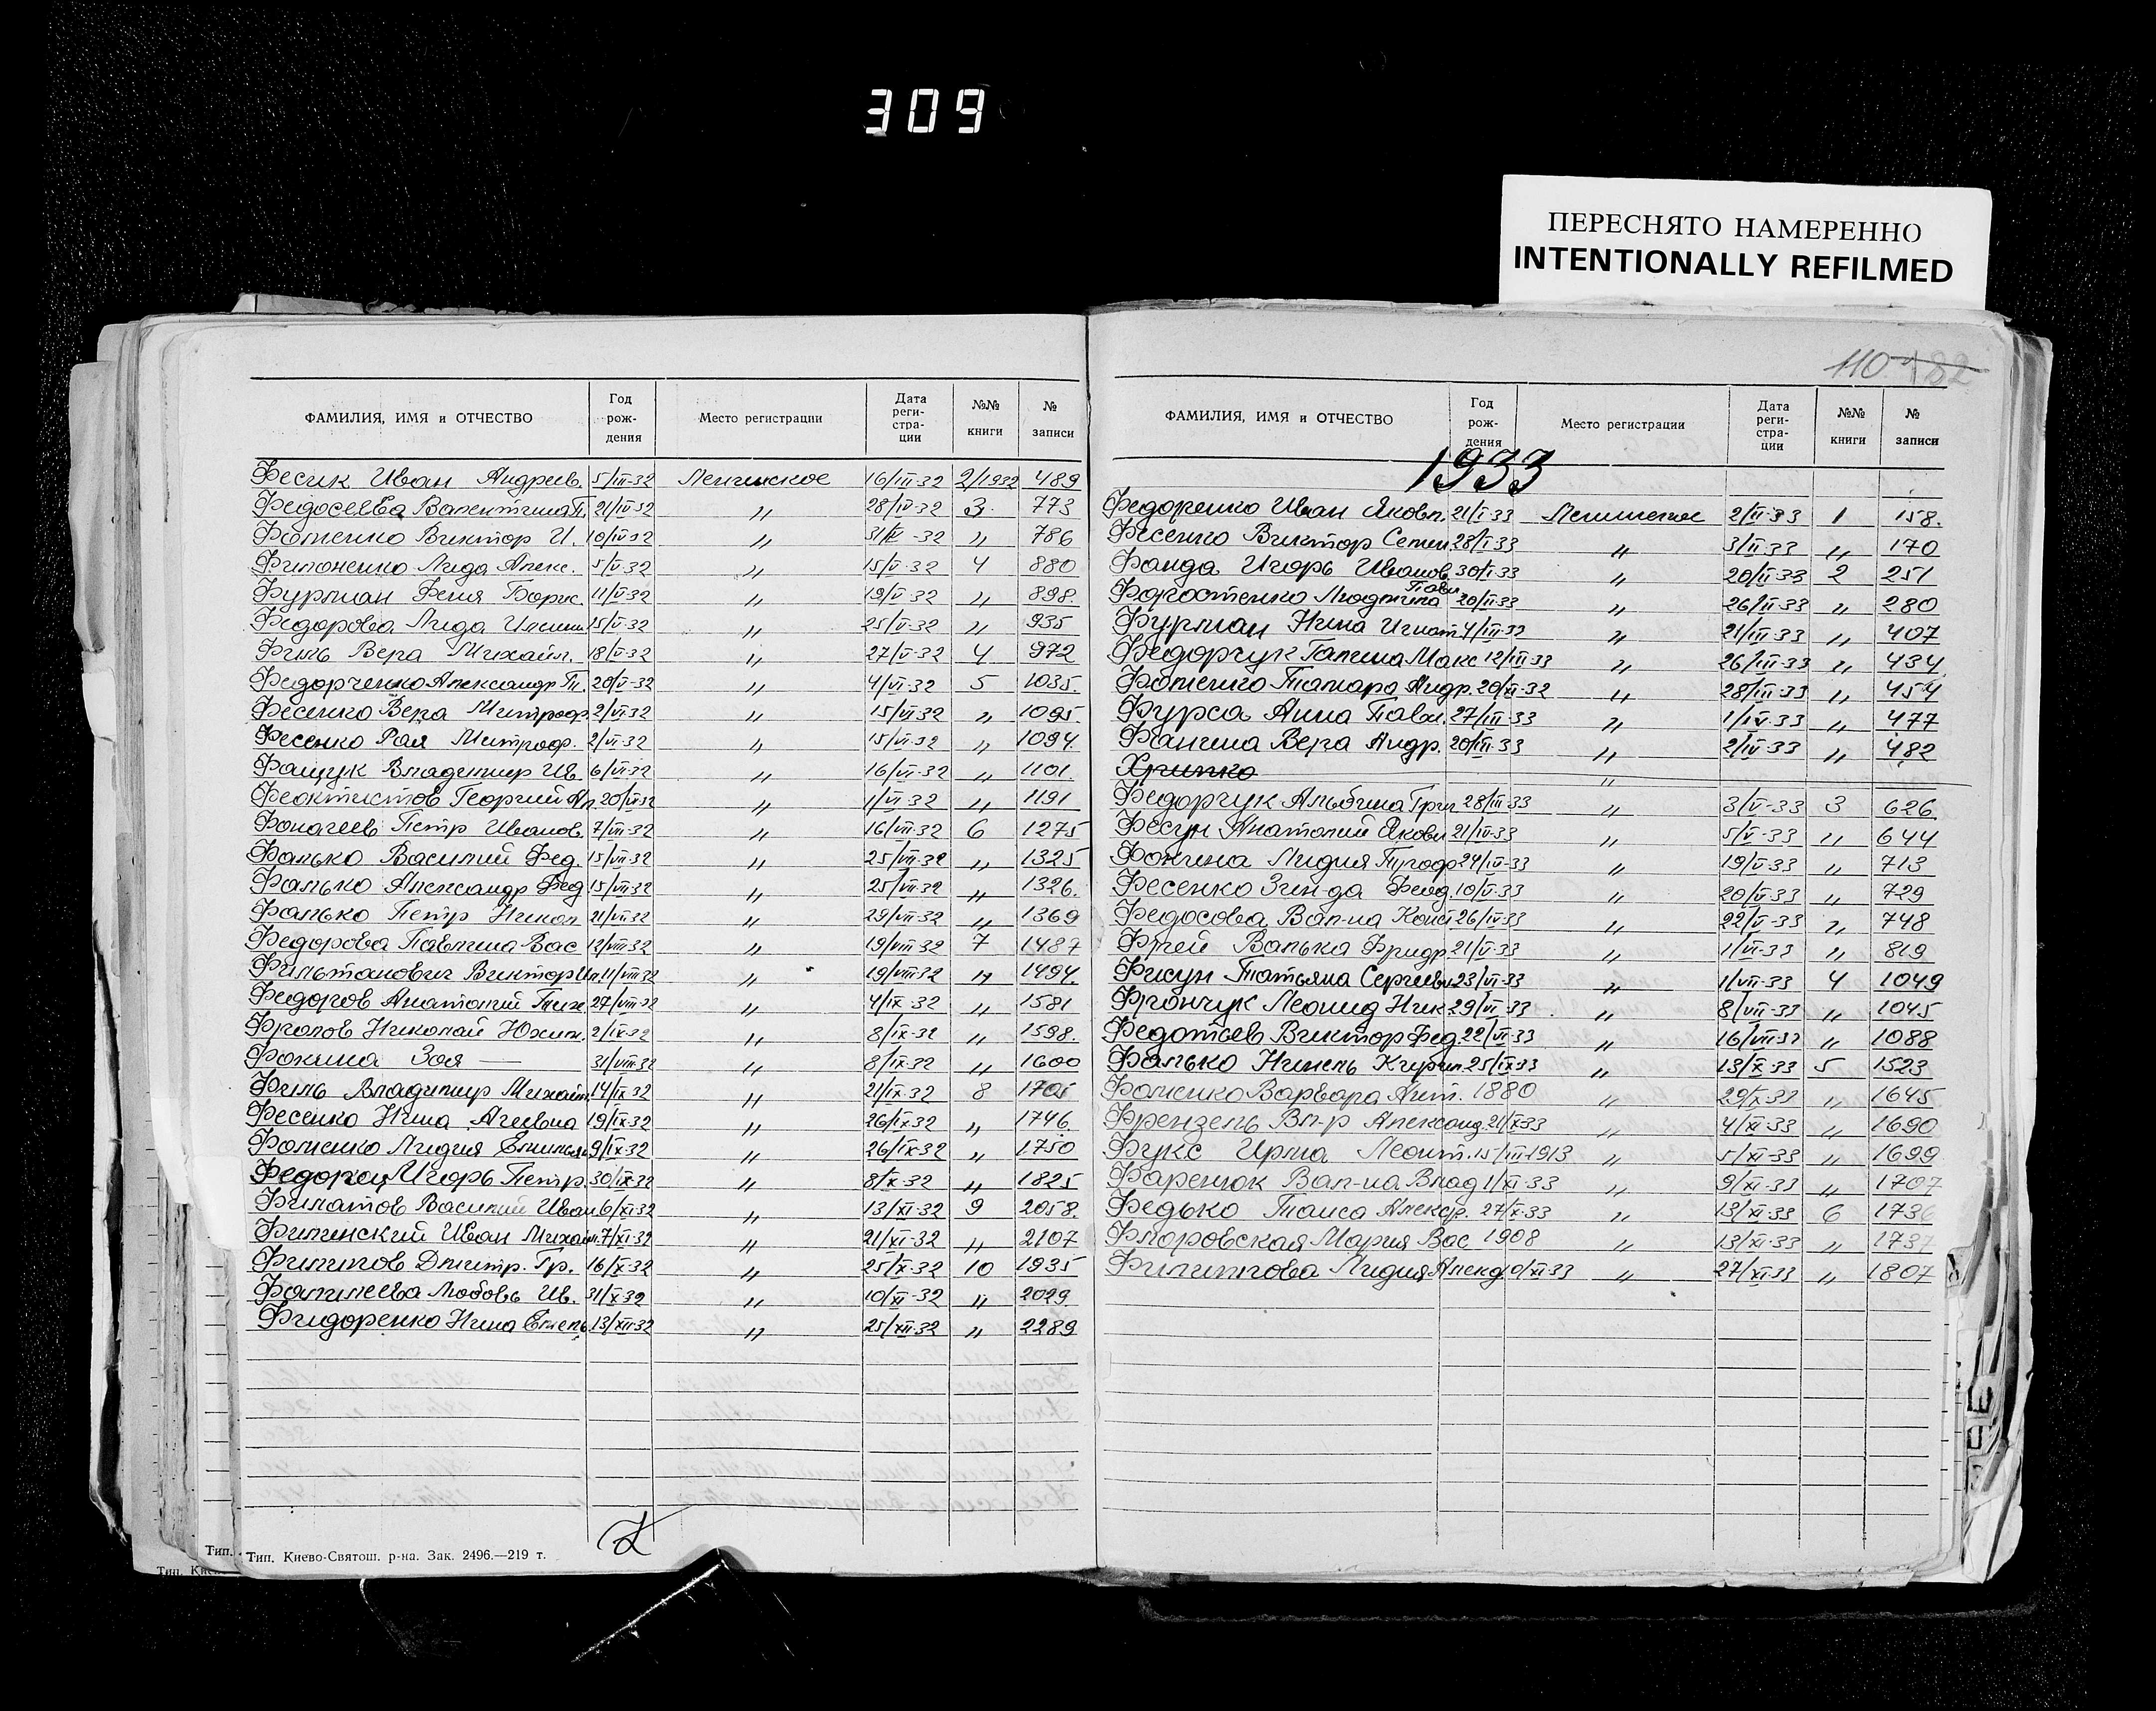 309
ПЕРЕСНЯТО НАМЕРЕННО
INTENTIONALLY REFILMED
110 182
ФАМИЛИЯ, ИМЯ и ОТЧЕСТВО Год рож- дения Место регистрации Дата реги- стра- ции №№ книги № записи
Фесик Иван Андреев. 5/III-32 Ленинское 16/III-32 2/1932 489
Федосеева Валентина П. 21/IV-32 " 28/IV-32 3 773
Фоменко Виктор И. 10/IV-32 " -32 " 786
Филоненко Лида Алекс. 5/V-32 " 15/V-32 4 880
Фурман Феня Борис. 11/V-32 " 19/V-32 " 898.
Федорова Лида 15/V-32 " 25/V-32 " 935
Филь Вера Михайл. 18/V-32 " 27/V-32 4 972
Федорченко Александр 20/V-32 " 4/VI-32 5 1035.
Фесенко Вера Митроф. 2/VI-32 " 15/VI-32 " 1095.
Фесенко Рая Митроф. 2/VI-32 " 15/VI-32 " 1094.
Фащук Владимир Ив. 6/VI-32 " 16/VI-32 " 1101.
Феоктистов Георгий Ал. " 1/VI-32 " 1191
Фокачеев Петр Иванов. 7/VII-32 " 16/VII-32 6 1275
Фалько Василий Фед. 15/VII-32 " 25/VII-32 " 1325
Фалько Александр Фед. 15/VII-32 " 25/VII-32 " 1326.
Фалько Петр Никол 21/VII-32 " 29/VII-32 " 1369
Федорова Павлина Вас 12/VIII-32 " 19/VIII-32 7 1487
Фильтанович Виктор Ил. 11/VIII-32 " 19/VIII-32 " 1494.
Федоров Анатолий Тих 27/VIII-32 " 4/IX-32 " 1581
Фролов Николай Юхим. 2/IX-32 " 8/IX-32 " 1598.
Фокина Зоя — 31/VIII-32 " 8/IX-32 " 1600
Филь Владимир Михайл. 14/IX-32 " 21/IX-32 8 1705
Фесенко Нина 19/IX-32 " 26/IX-32 " 1746.
Фоменко Лидия Емильян 9/IX-32 " 26/IX-32 " 1750
Федорец Игорь Петр. 30/IX-32 " 8/X-32 " 1825
Филатов Василий Иван 6/XI-32 " 13/XI-32 9 2058.
Филинский Иван Михайл. 7/XI-32 " 21/XI-32 " 2107
Филипов Дмитр. Гр. 16/X-32 " 25/X-32 10 1935
Фалилеева Любовь Ив. 31/X-32 " 10/XI-32 " 2029.
Фидоренко Нина Емель. 13/XII-32 " 25/XII-32 " 2289
Тип. Киево-Святош. р-на. Зак. 2496.—219 т.
ФАМИЛИЯ, ИМЯ и ОТЧЕСТВО Год рож- дения Место регистрации Дата реги- стра- ции №№ книги № записи
1933
Федоренко Иван Яковл. 21/I-33 Ленинское 2/II-33 1 158.
Фесенко Виктор Семен 28/I-33 " 3/II-33 " 170
Фанда Игорь Иванов. 30/I-33 " 20/II-33 2 251
Форостенко Людмила Павл. 20/II-33 " 26/II-33 " 280
Фурман Нина Игнат 4/III-33 " 21/III-33 " 407
Федорчук Галина Макс 12/III-33 " 26/III-33 " 434
Фоменко Тамара Андр. 20/XI-32 " 28/III-33 " 454
Фурса Анна Павл. 27/III-33 " 1/IV-33 " 477
Фангина Вера Андр. 20/III-33 " 2/IV-33 " 482
Хрипко "
Федорчук Альбина Григ 28/III-33 " 3/V-33 3 626
Фесун Анатолий Яковл 21/IV-33 " 5/V-33 " 644
Фокина Лидия 24/IV-33 " 19/V-33 " 713
Фесенко Зин-да Феод. 10/V-33 " 20/V-33 " 729
Федосова Вал-на Конст 26/IV-33 " 22/V-33 " 748
Фрей Валька Фридр 21/V-33 " 1/VI-33 " 819
Фисун Татьяна Сергеевн 23/VI-33 " 1/VII-33 4 1049
Фрончук Леонид Ник 29/VI-33 " 8/VII-33 " 1045
Федотьев Виктор Фед 22/VI-33 " 16/VII-33 " 1088
Фалько Нинель Кирил. 25/IX-33 " 13/X-33 5 1523
Фоменко Варвара Ант. 1880 " 29/X-33 " 1645
Френзель Вл-р Александ. 21/X-33 " 4/XI-33 " 1690
Фукс Ирма Леонт. 15/III-1913 " 5/XI-33 " 1699
Фаренюк Вал-на Влад 1/XI-33 " 9/XI-33 " 1707
Федько Таиса Алексдр. 27/X-33 " 13/XI-33 6 1736
Флоровская Мария Вас 1908 " 13/XI-33 " 1737
Филиппова Лидия Алекд 10/XI-33 " 27/XI-33 " 1807